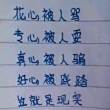 花心被人骂
专心被人耍
真心被人骗
好心被践踏
这就是现实